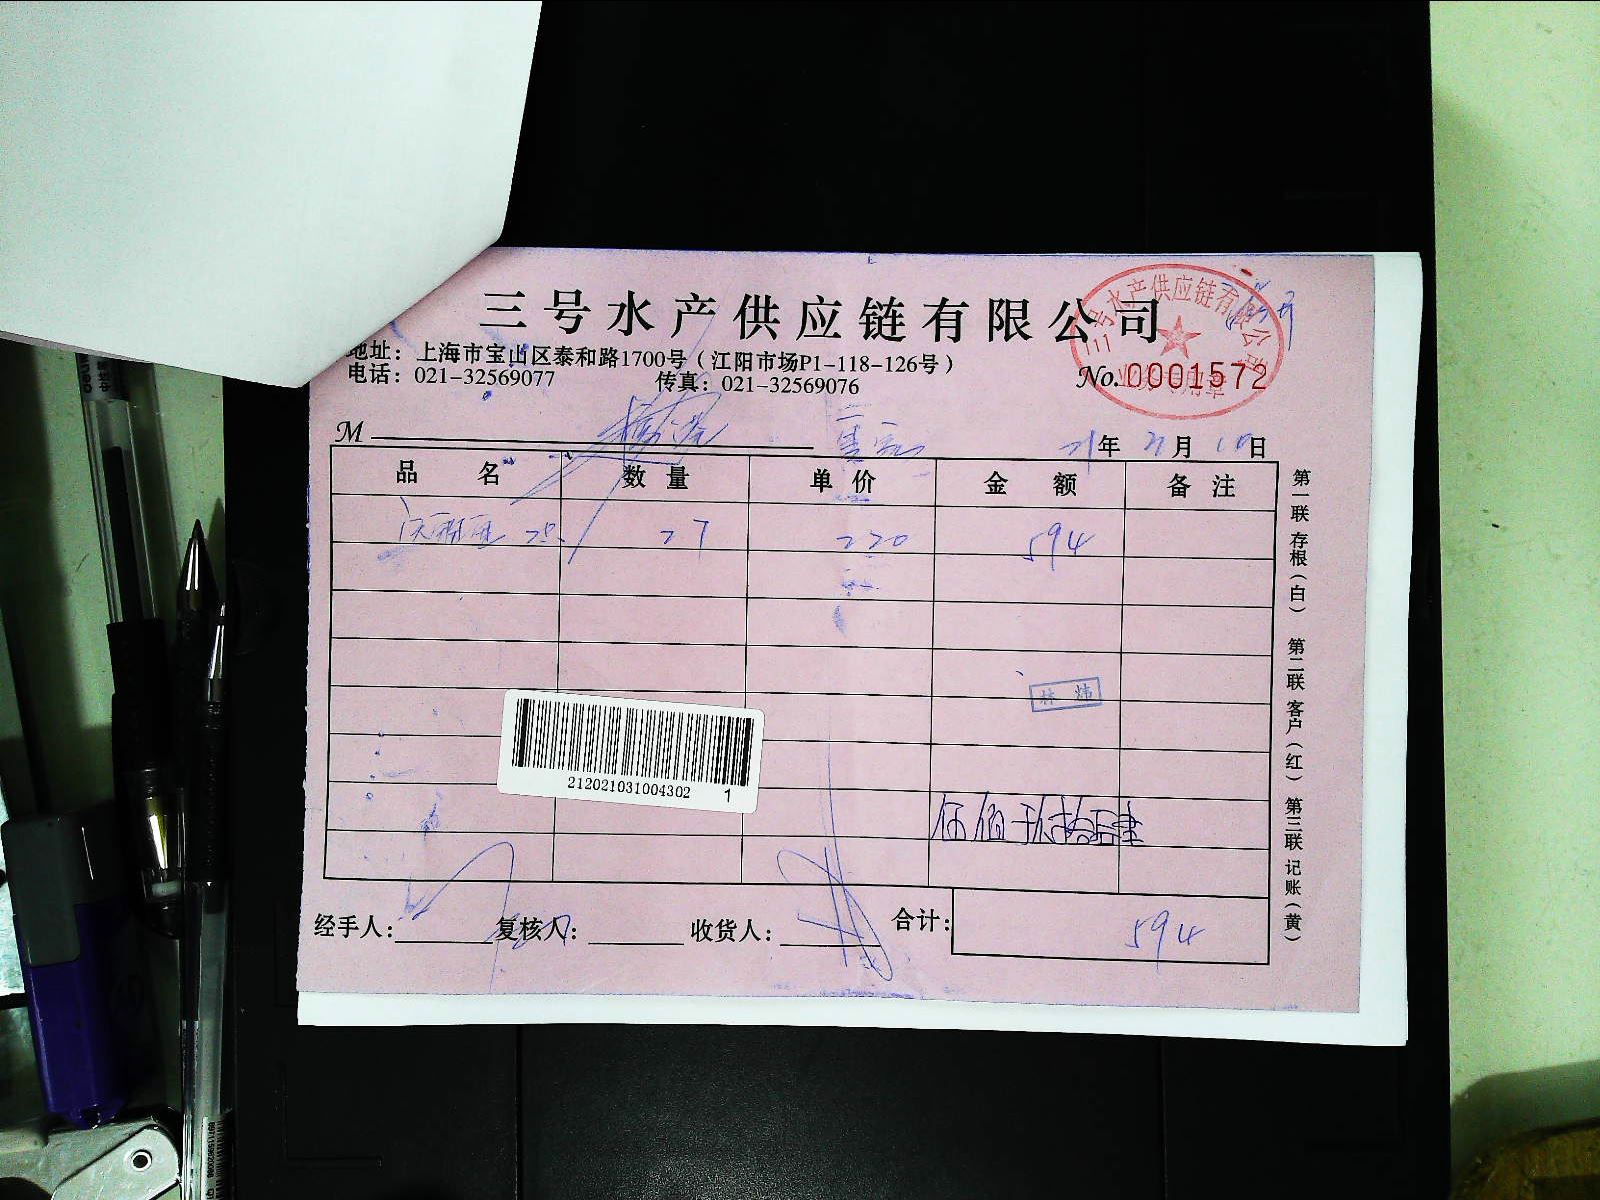 三号水产供应链有限公司
三号水产供应链有限公司
地址：上海市宝山区泰和路1700号（江阳市场P1-118-126号）
电话：021-32569077 传真：021-32569076
No.0001572
M
21年 月 日
品名 数量 单价 金额 备注
27 220 594
林炜
212021031004302 1
伍佰玖拾肆
经手人： 复核人： 收货人： 合计：594
第一联 存根（白） 第二联 客户（红） 第三联 记账（黄）